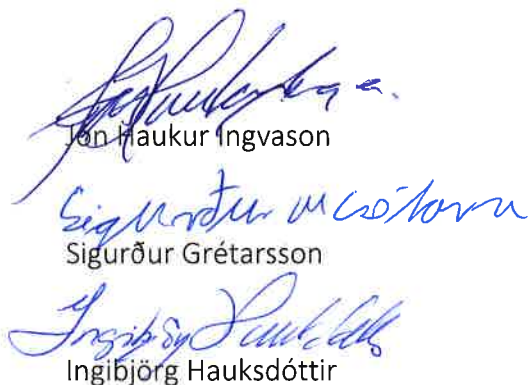 Jón Haukur Ingvason
Sigurður
Sigurður Grétarsson
Ingibjörg Hauksd
Ingibjörg Hauksdóttir